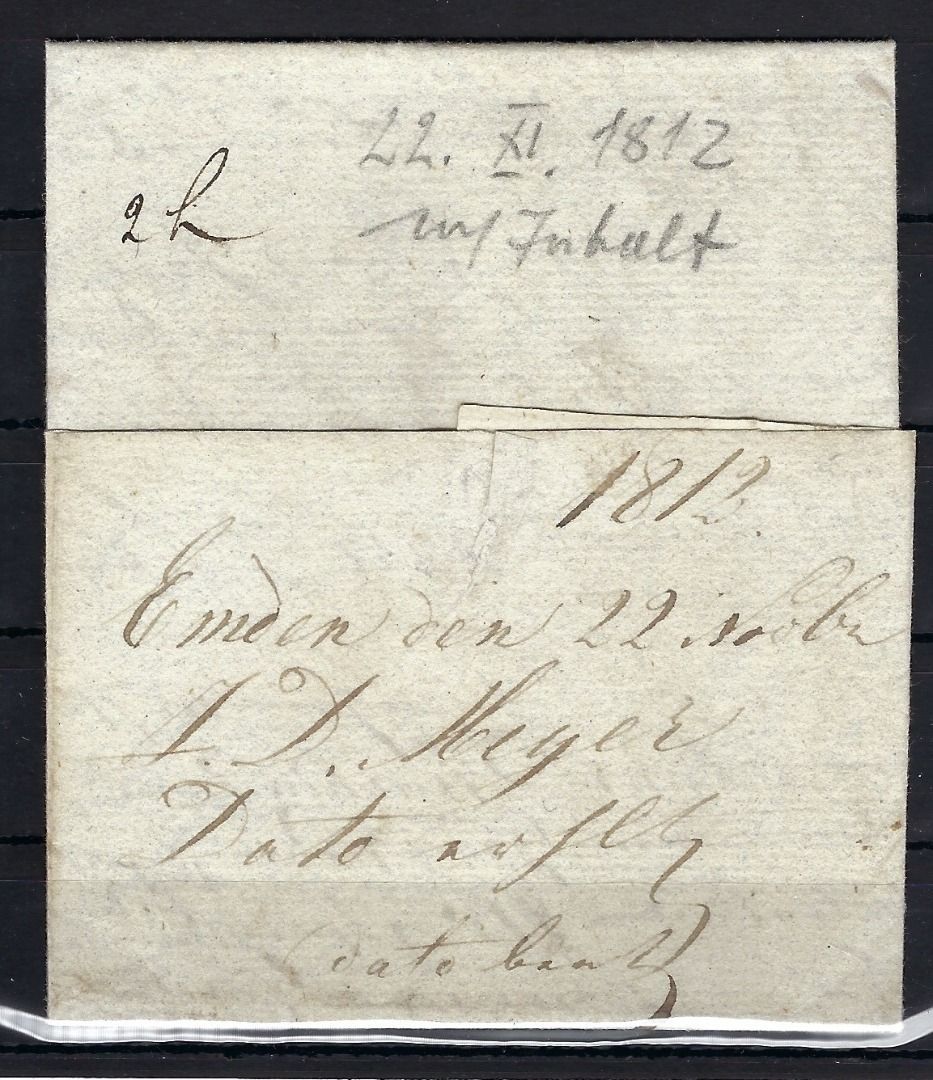 22. XI. 1812
2 h
m/ Inhalt
1812.
Emden den 22 Novbr
J. D. Meyer
Dato
dato